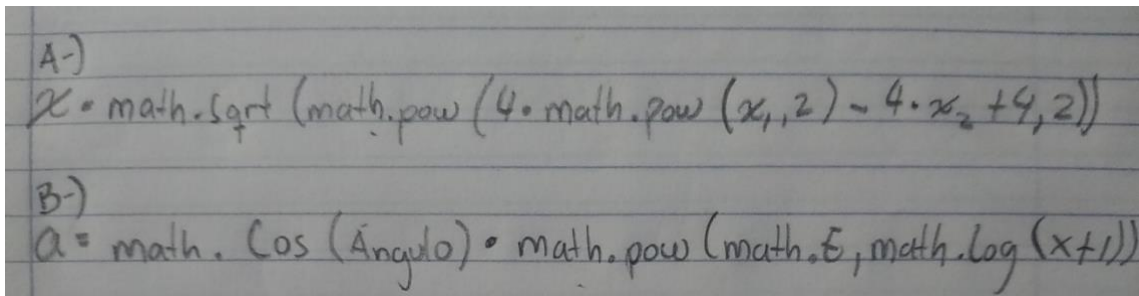 A-)
x = math.sqrt (math.pow (4 • math.pow (x₁, 2) - 4 • x₂ + 4, 2))
B-)
a = math. Cos (Ángulo) • math.pow (math.E, math.log (x+1))